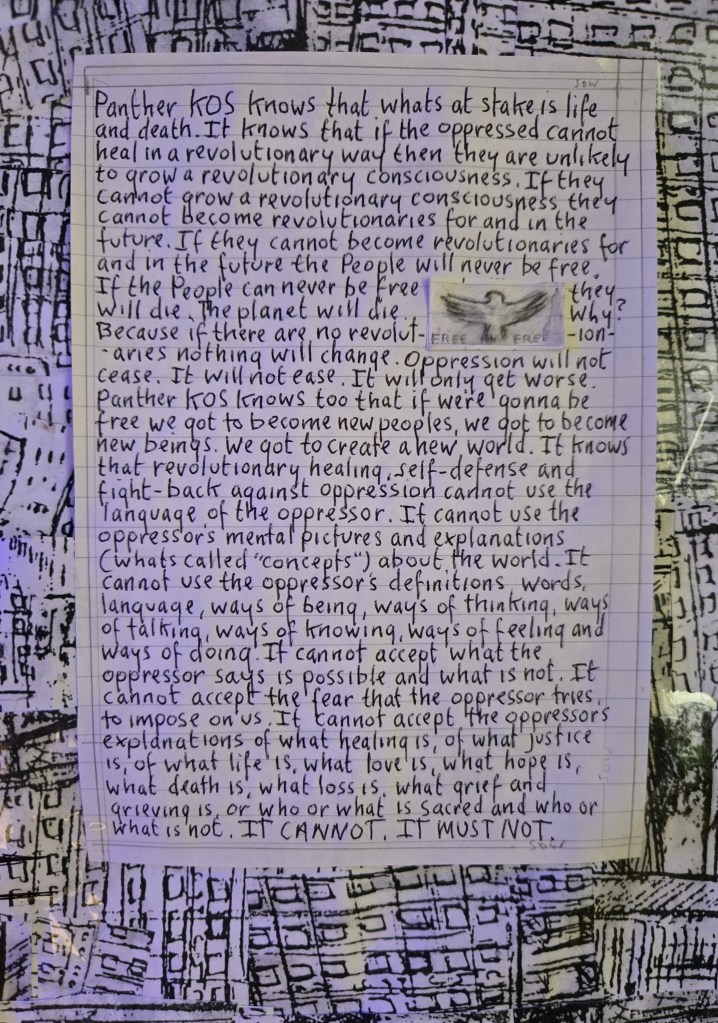 SDW
Panther KOS knows that whats at stake is life
and death. It knows that if the oppressed cannot
heal in a revolutionary way then they are unlikely
to grow a revolutionary consciousness. If they
cannot grow a revolutionary consciousness they
cannot become revolutionaries for and in the
future. If they cannot become revolutionaries for
and in the future the People will never be free.
If the People can never be free they
will die. The planet will die. Why?
FREE FREE
Because if there are no revolut- -ion-
-aries nothing will change. Oppression will not
cease. It will not ease. It will only get worse.
Panther KOS knows too that if we're gonna be
free we got to become new peoples, we got to become
new beings. We got to create a new world. It knows
that revolutionary healing, self-defense and
fight-back against oppression cannot use the
language of the oppressor. It cannot use the
oppressor's mental pictures and explanations
(whats called "concepts") about the world. It
cannot use the oppressor's definitions, words,
language, ways of being, ways of thinking, ways
of talking, ways of knowing, ways of feeling and
ways of doing. It cannot accept what the
oppressor says is possible and what is not. It
cannot accept the fear that the oppressor tries
to impose on us. It cannot accept the oppressors
explanations of what healing is, of what justice
is, of what life is, what love is, what hope is,
what death is, what loss is, what grief and
grieving is, or who or what is sacred and who or
what is not. IT CANNOT. IT MUST NOT.
SDW